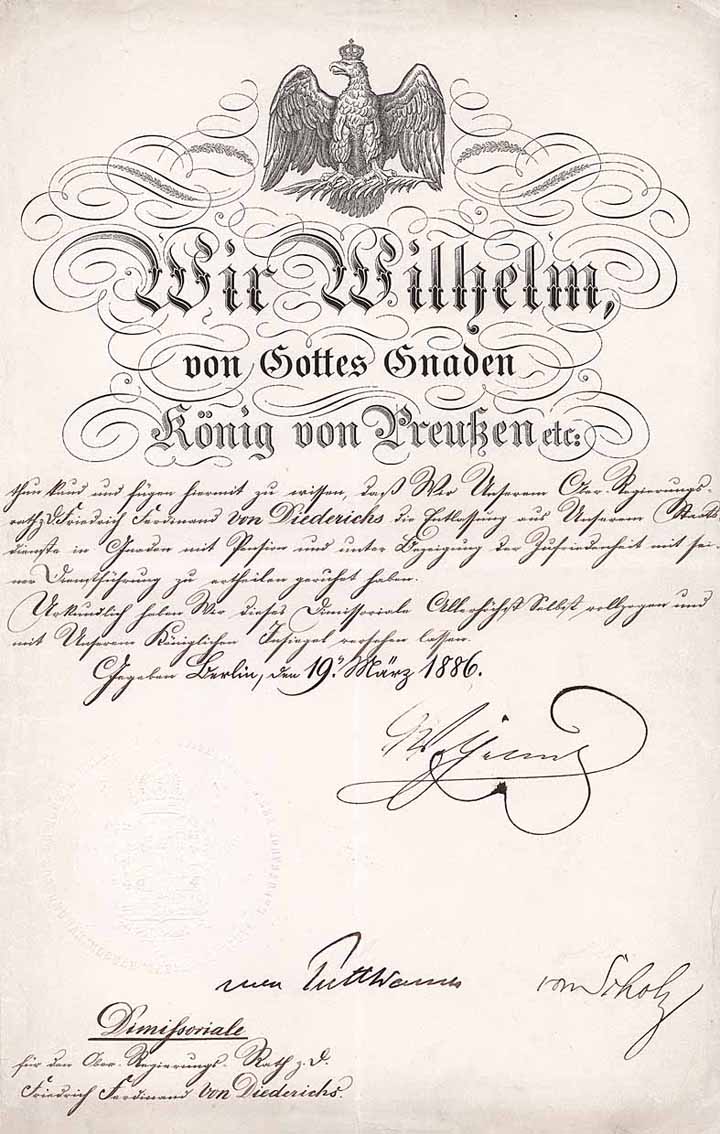 Wir Wilhelm,
von Gottes Gnaden
König von Preußen etc:
thun kund und fügen hiermit zu wissen, daß Wir Unserem Ober-Regierungs-
rath z. D. Friedrich Ferdinand von Diederichs die Entlassung aus Unserem Staats
dienste in Gnaden mit Pension und unter Bezeigung der Zufriedenheit mit sei-
ner Dienstführung zu ertheilen geruhet haben.
Urkundlich haben Wir dieses Dimissoriale Allerhöchst Selbst vollzogen und
mit Unserem Königlichen Insiegel versehen lassen.
Gegeben Berlin, den 19. März 1886.
Wilhelm
von Puttkamer von Scholz
Dimissoriale
für den Ober-Regierungs-Rath z. D.
Friedrich Ferdinand von Diederichs.